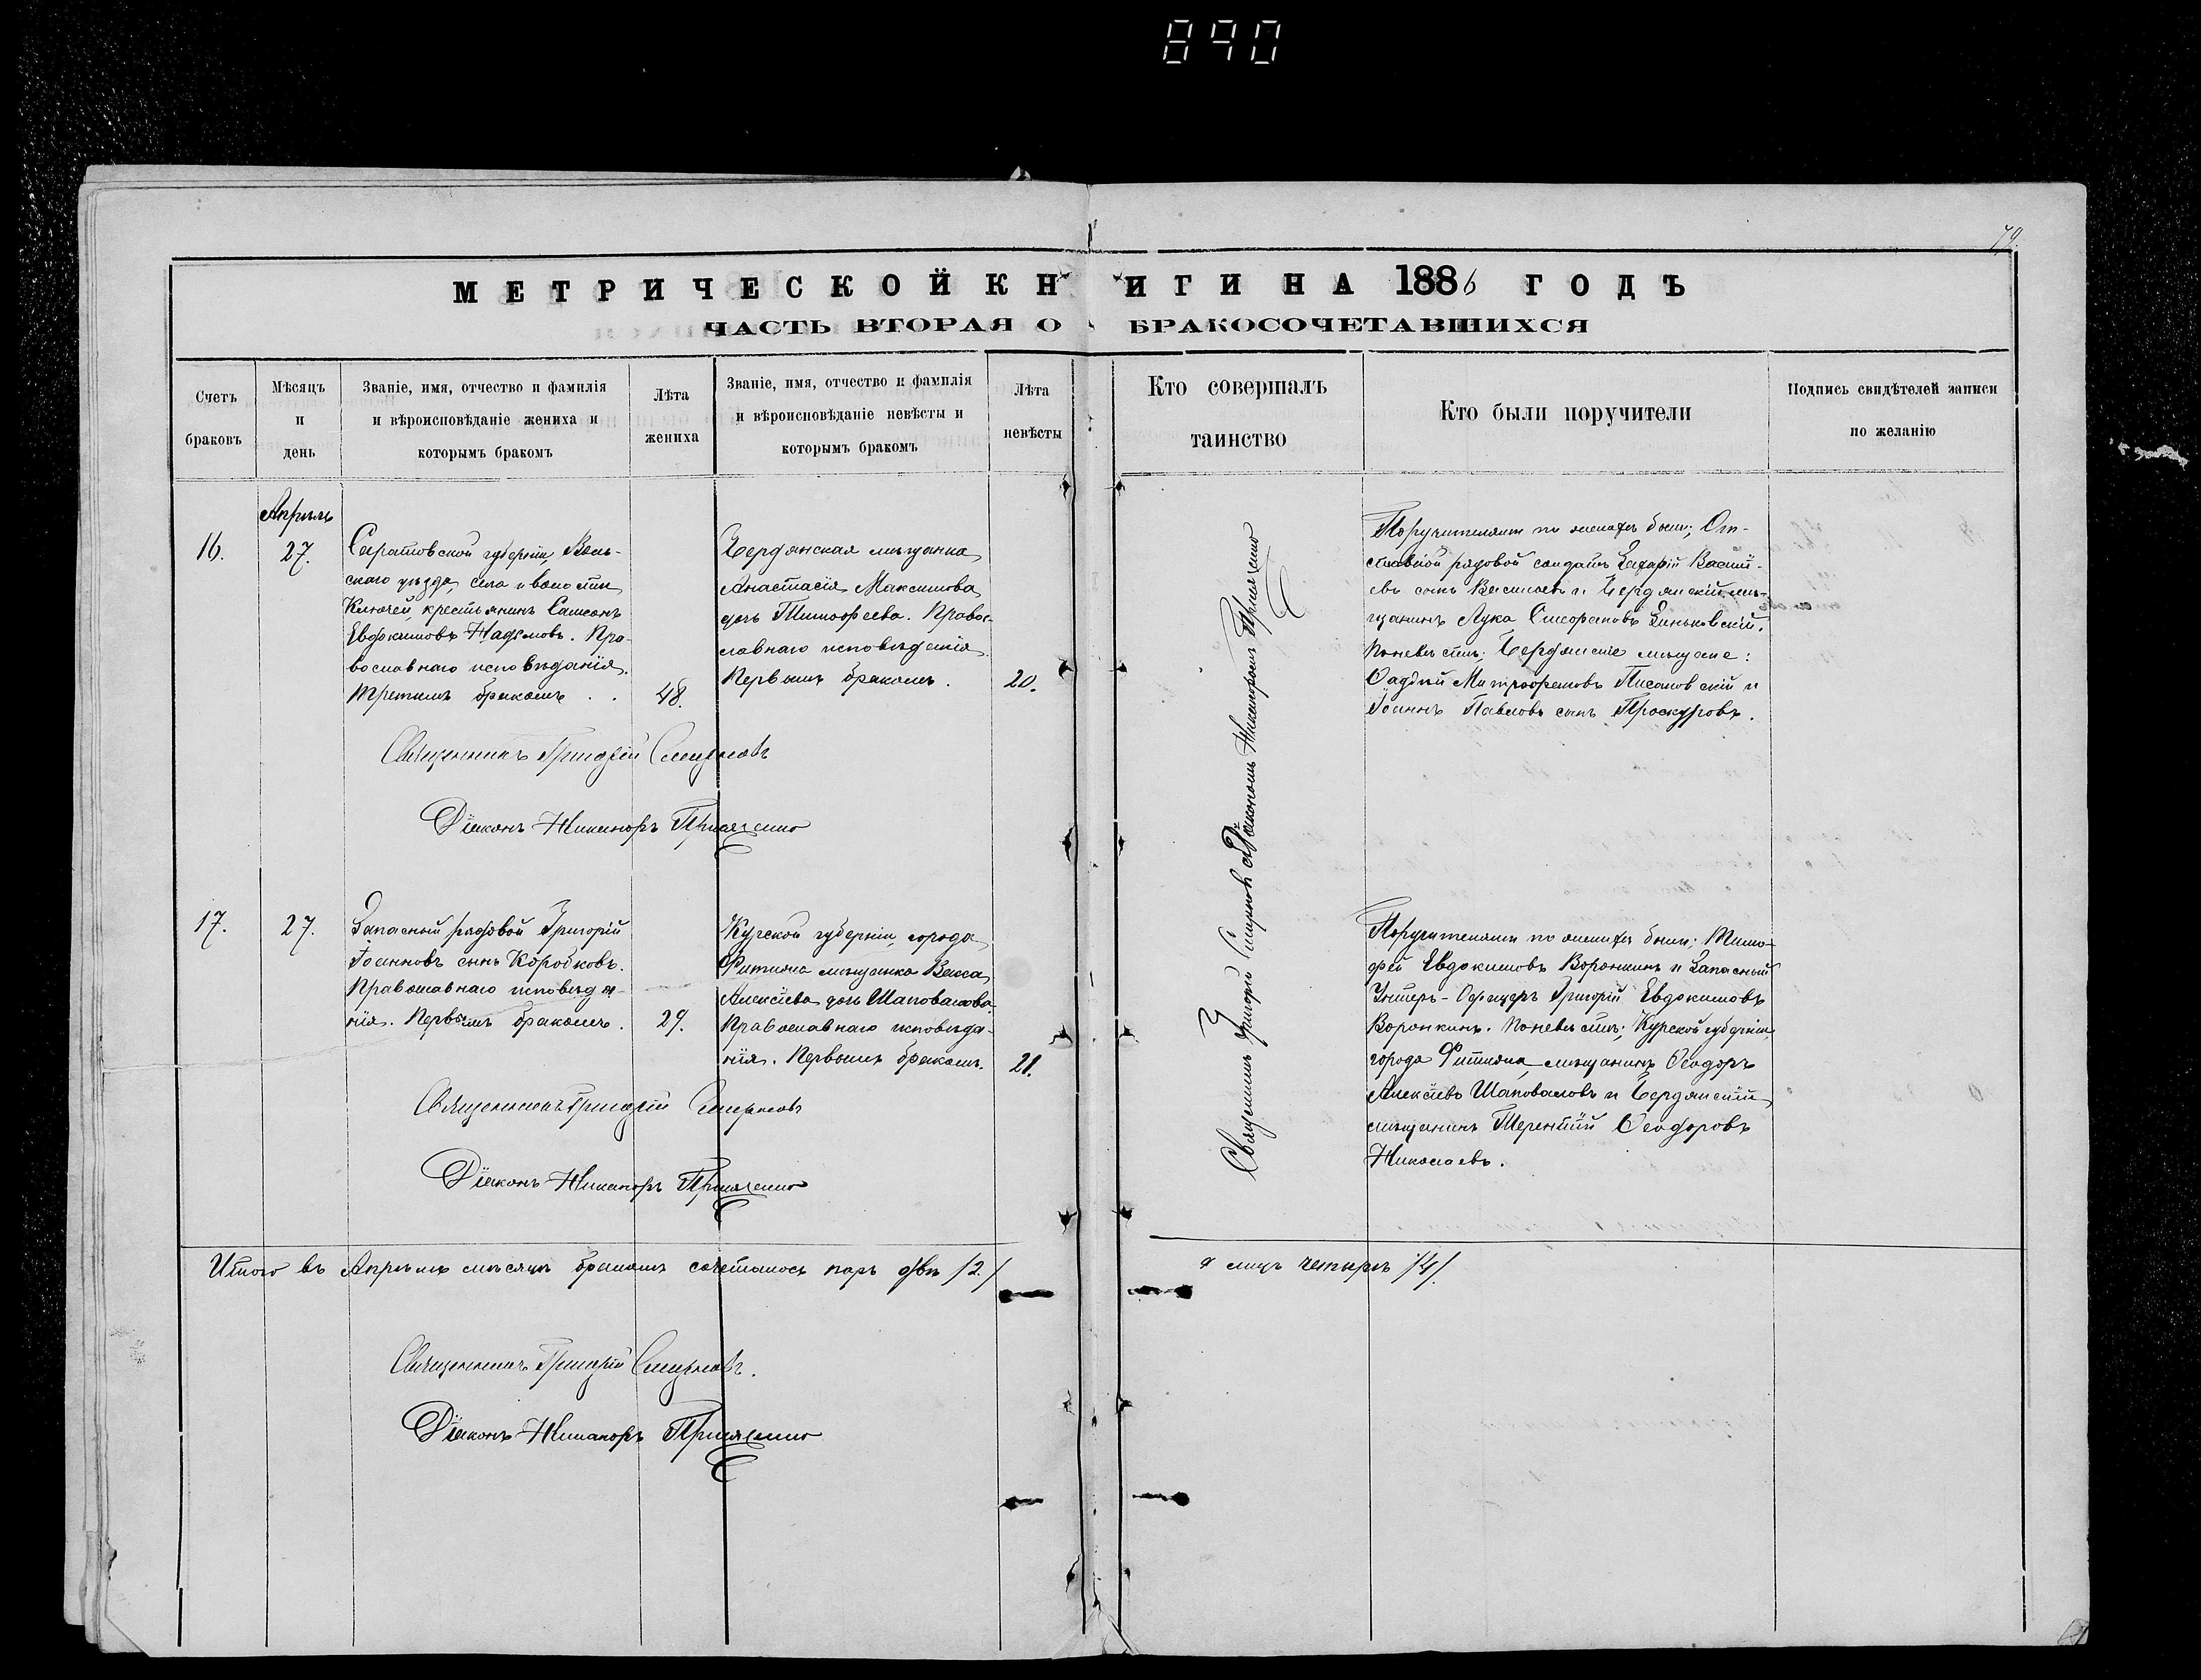 890
79.
МЕТРИЧЕСКОЙ КНИГИ НА 1886 ГОДЪ
ЧАСТЬ ВТОРАЯ О БРАКОСОЧЕТАВШИХСЯ
Счетъ браковъ
Мѣсяцъ и день
Званіе, имя, отчество и фамилія и вѣроисповѣданіе жениха и которымъ бракомъ
Лѣта жениха
Званіе, имя, отчество и фамилія и вѣроисповѣданіе невѣсты и которымъ бракомъ
Лѣта невѣсты
Кто совершалъ таинство
Кто были поручители
Подпись свидѣтелей записи по желанію
Апрѣль
16.
27.
Саратовской губерніи, Воль-
скаго уѣзда, села и волости
Ключей, крестьянинъ Самсонъ
Евдокимовъ. Пра-
вославнаго исповѣданія.
Третьимъ бракомъ . .
48.
Бердянская мѣщанка
Анастасія Максимова
дочь Тимофеева. Правос-
лавнаго исповѣданія.
Первымъ бракомъ.
20.
Священникъ Григорій Смирновъ
Діаконъ Никаноръ
Поручителями по женихѣ были; От-
ставной рядовой солдатъ Захарій Васил-
евъ сынъ Васильевъ и Бердянскій мѣ-
щанинъ Лука Зиньковскій.
По невѣстѣ; Бердянскіе мѣщане:
Митрофановъ и
Іоаннъ Павловъ сынъ Проскуровъ.
Священникъ Григорій Смирновъ съ Діакономъ Никаноромъ
17.
27.
Запасный рядовой Григорій
Іоанновъ сынъ Коробковъ.
Православнаго исповѣда-
нія. Первымъ бракомъ.
29.
Курской губерніи, города
мѣщанка Васса
Алексѣева дочь Шаповалова.
Православнаго исповѣда-
нія. Первымъ бракомъ.
21.
Священникъ Григорій Смирновъ
Діаконъ Никаноръ
Поручителями по женихѣ были; Тимо-
фей Евдокимовъ Воронкинъ и Запасный
Унтеръ-Офицеръ Григорій Евдокимовъ
Воронкинъ. По невѣстѣ; Курской губерніи,
города мѣщанинъ Ѳеодоръ
Алексѣевъ Шаповаловъ и Бердянскій
мѣщанинъ Терентій Ѳеодоровъ
Николаевъ.
Итого въ Апрѣлѣ мѣсяцѣ бракомъ сочеталось паръ двѣ /2/
а лицъ четыре /4/.
Священникъ Григорій Смирновъ.
Діаконъ Никаноръ